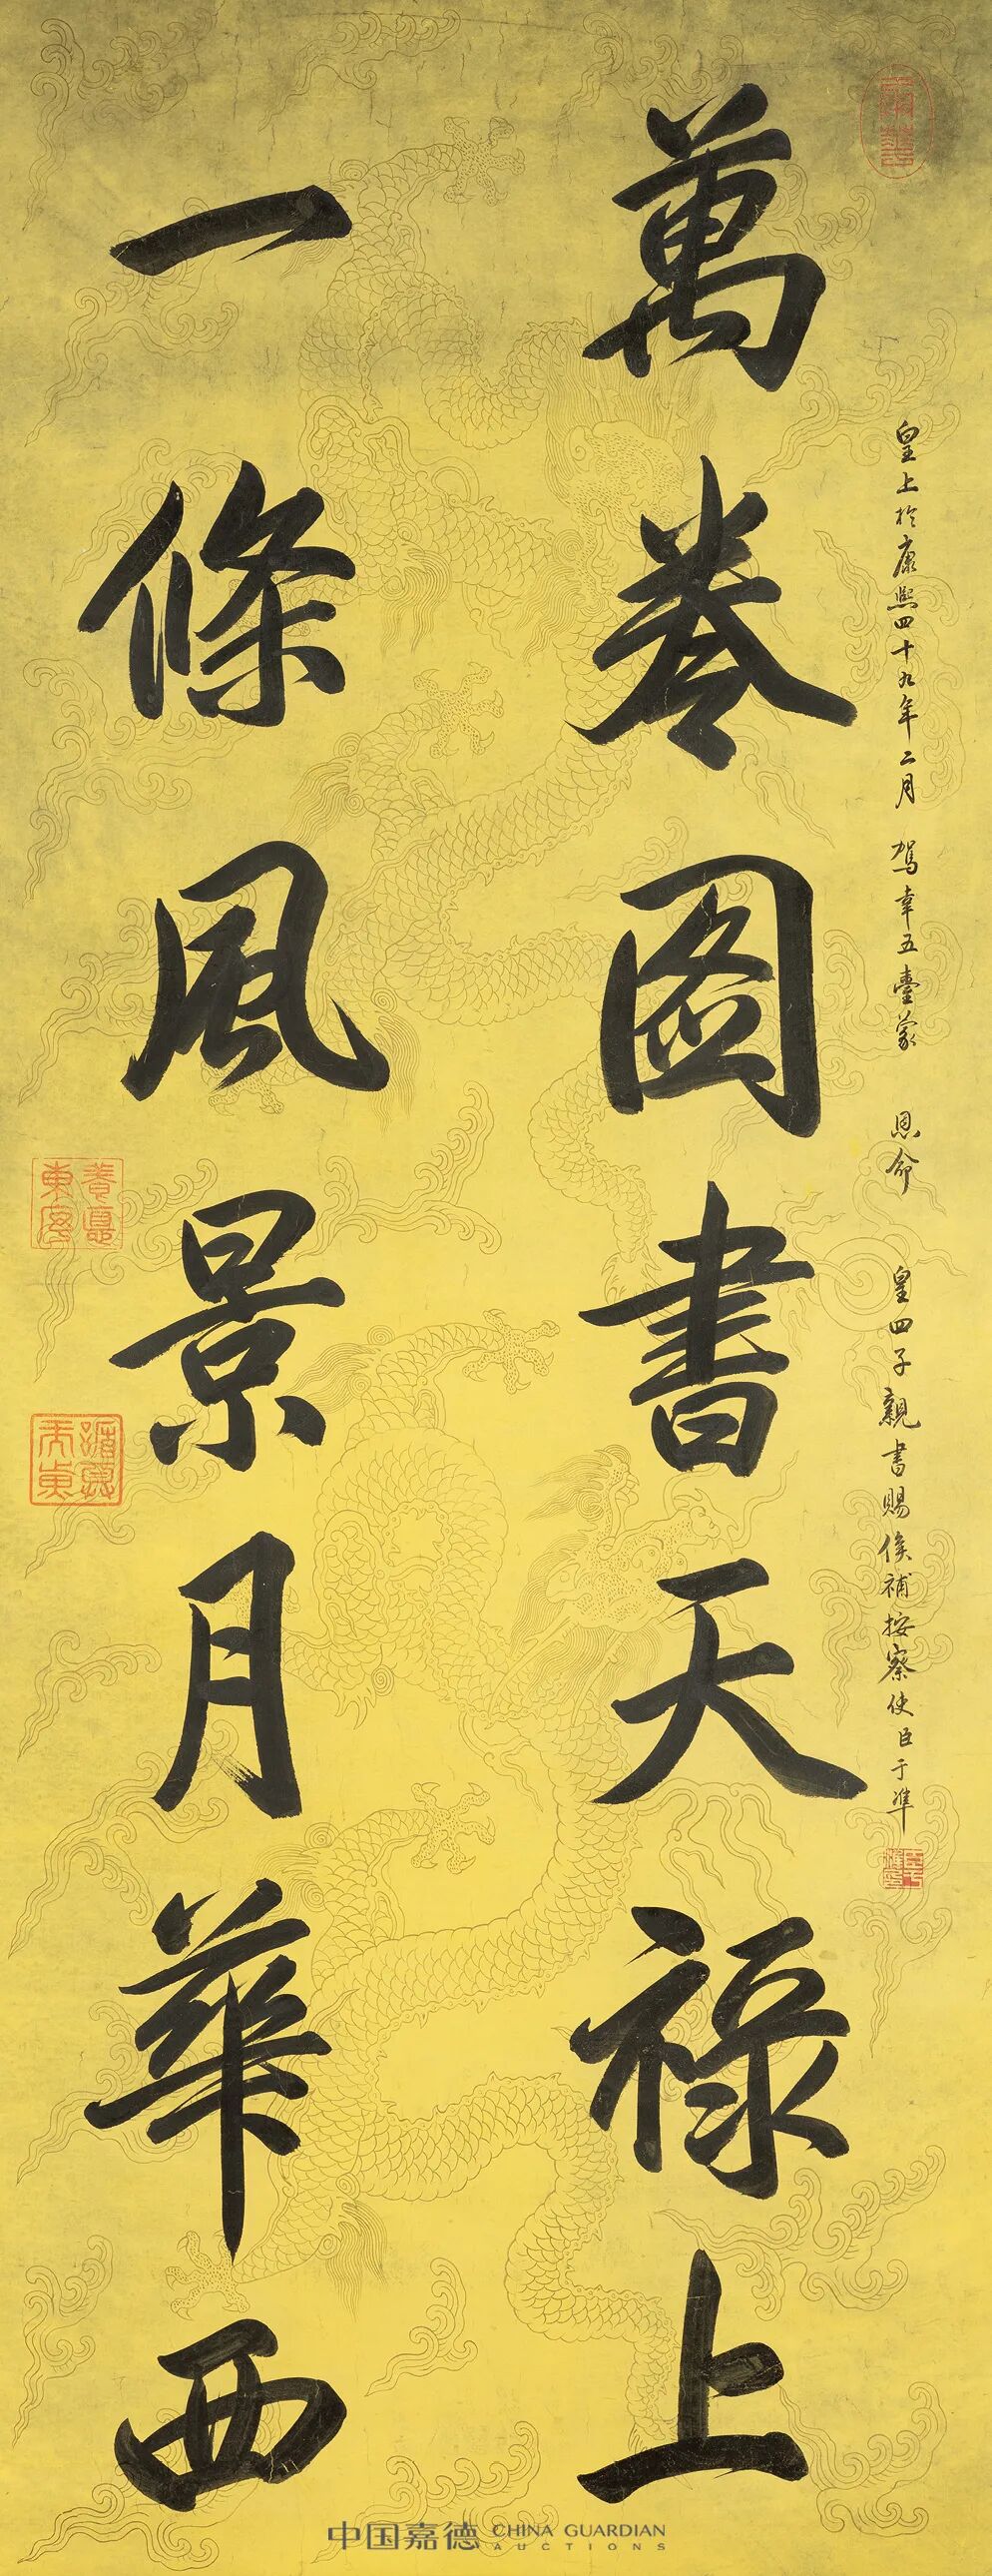 皇上於康熙四十九年二月 駕幸五臺蒙 恩命 皇四子親書賜候補按察使臣于準
萬卷圖書天祿上
一條風景月華西
中国嘉德 CHINA GUARDIAN
AUCTIONS